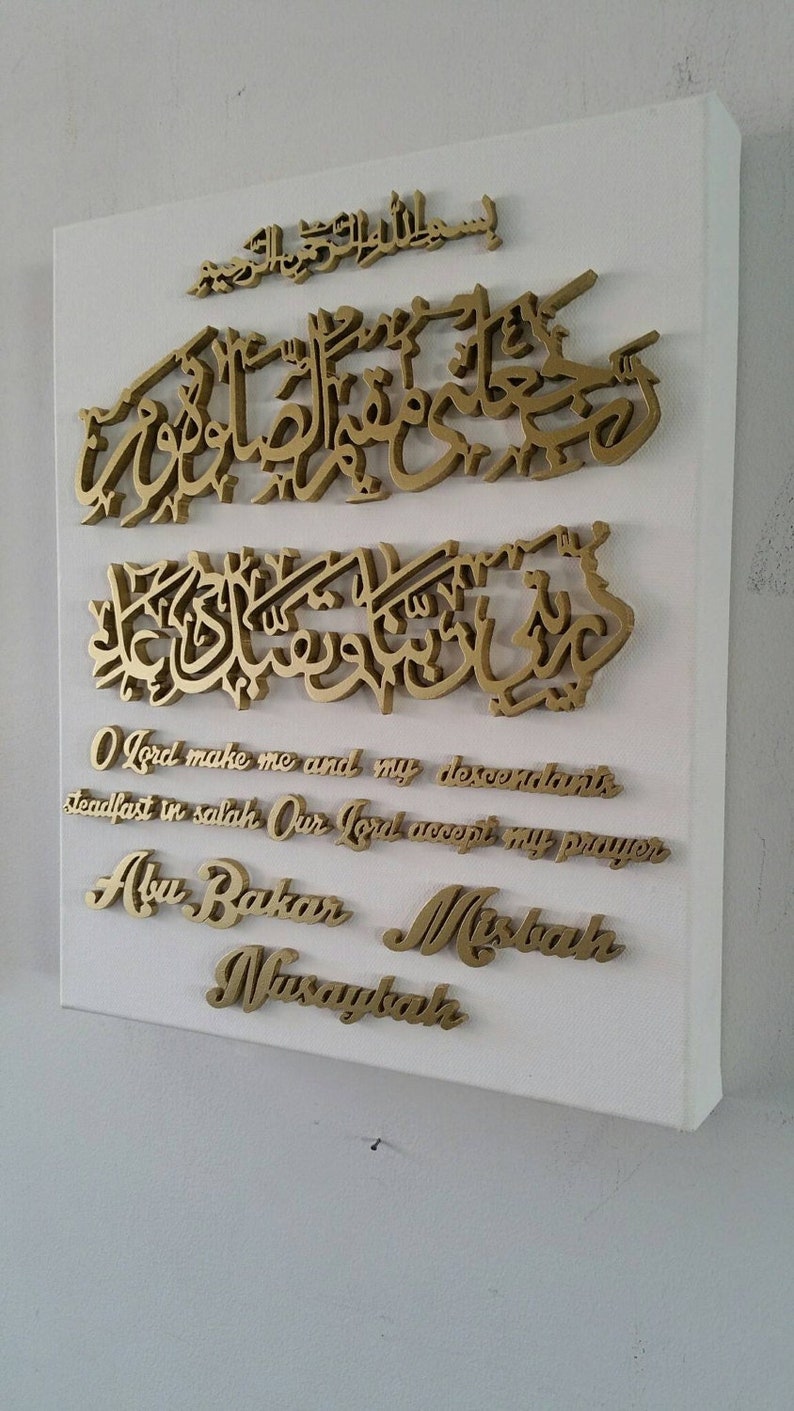 بسم الله الرحمن الرحيم
رب اجعلني مقيم الصلوة ومن
ذريتي ربنا وتقبل دعاء
O Lord make me and my descendants
steadfast in salah Our Lord accept my prayer
Abu Bakar Misbah
Nusaybah